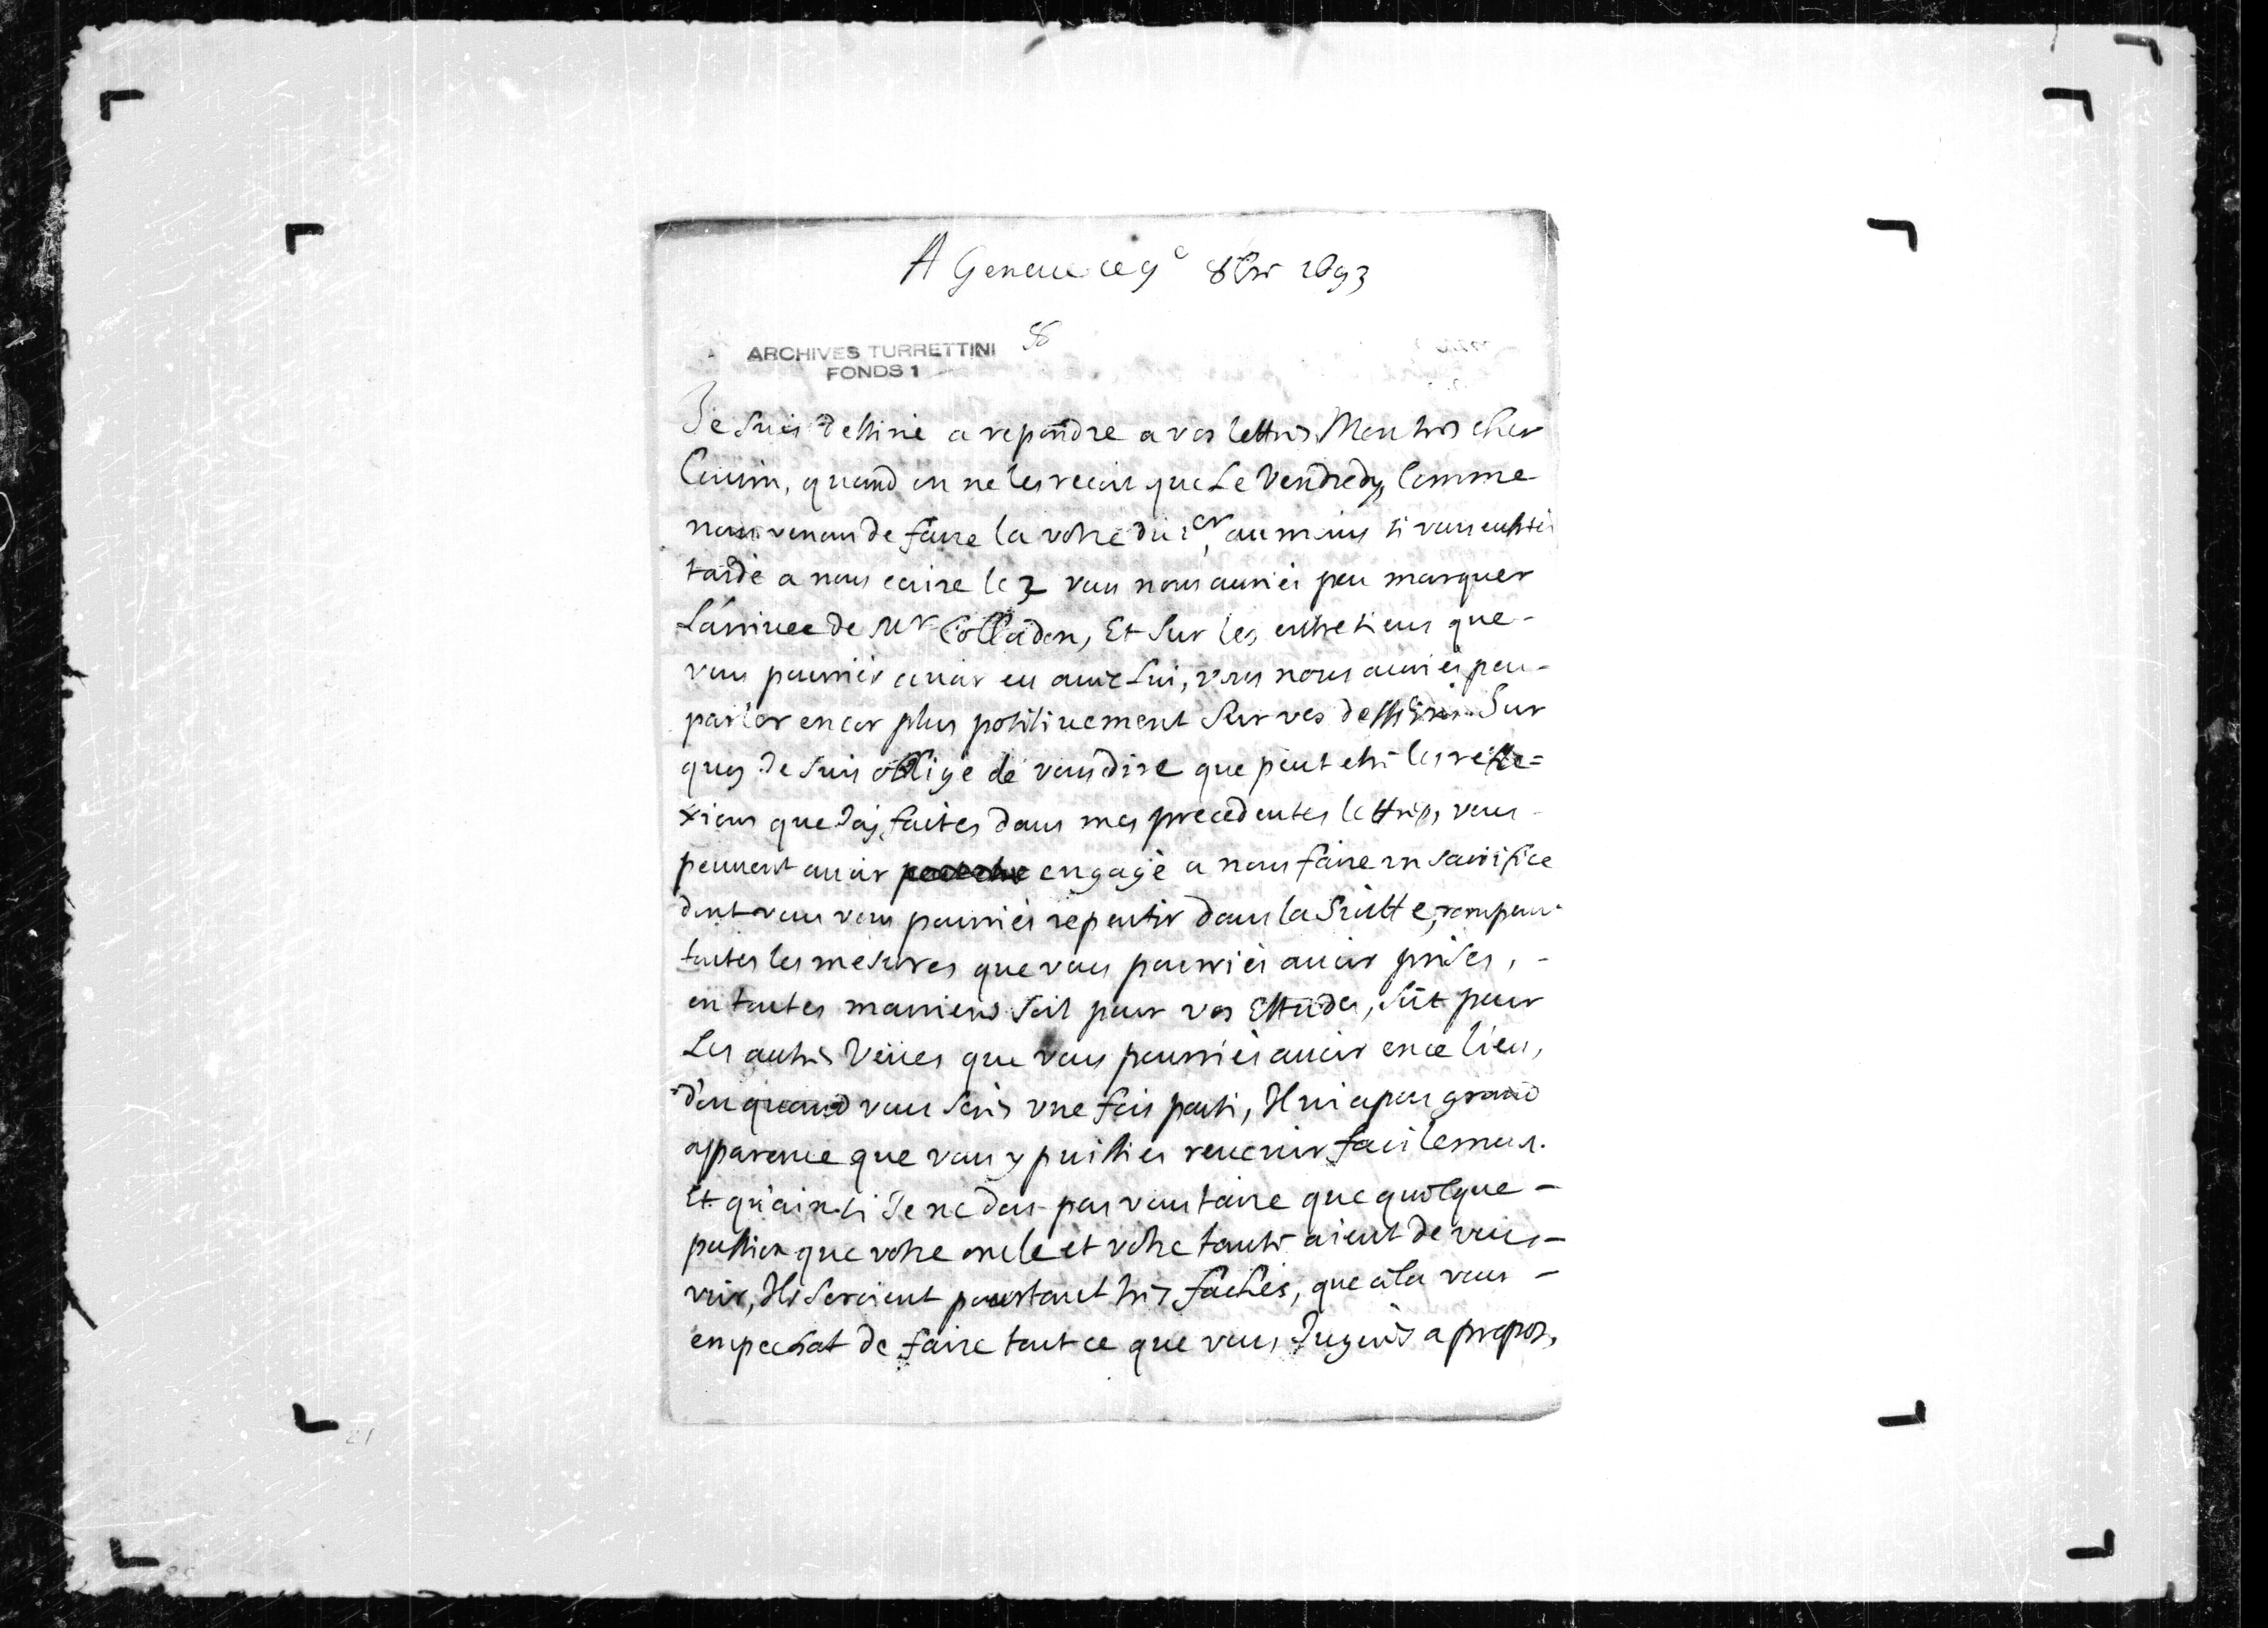 A Geneue ce 9e 8bre 1693
58
ARCHIVES TURRETTINI
FONDS 1
Je suis destiné a repondre a vos lettres Mon tres cher
Cousin, quand on ne les recoit que Le Vendredy, Comme
nous venons de faire la votre du 1er, au moins si vous eussiés
tardé a nous ecrire le 3 vous nous auriés peu marquer
L'arriuee de Mr Colladon, Et sur les entretiens que
vous pourriés auoir eu auec Lui, vous nous auriés peu
parler encor plus positiuement sur vos desseins. Sur
quoy Je suis obligé de vous dire que peut etre les refle=
xions que J'ay faites dans mes precedentes lettres, vous
peuuent auoir engagé a nous faire un sacrifice
dont vous vous pourriés repentir dans la Suitte, rompant
toutes les mesures que vous pourriés auoir prises,
en toutes manieres soit pour vos Ettudes, soit pour
Les autres Veües que vous pourriés auoir en ce lieu,
d'ou quand vous serés vne fois parti, Il ni a pas grand
apparence que vous y puissies reuenir facilement.
Et qu'ainsi Je ne dois pas vous taire que quelque
passion que votre oncle et votre tante aient de vous
voir, Ils seroient pourtant tres fachés, que cela vous
empechat de faire tout ce que vous Jugerés a propos,
21